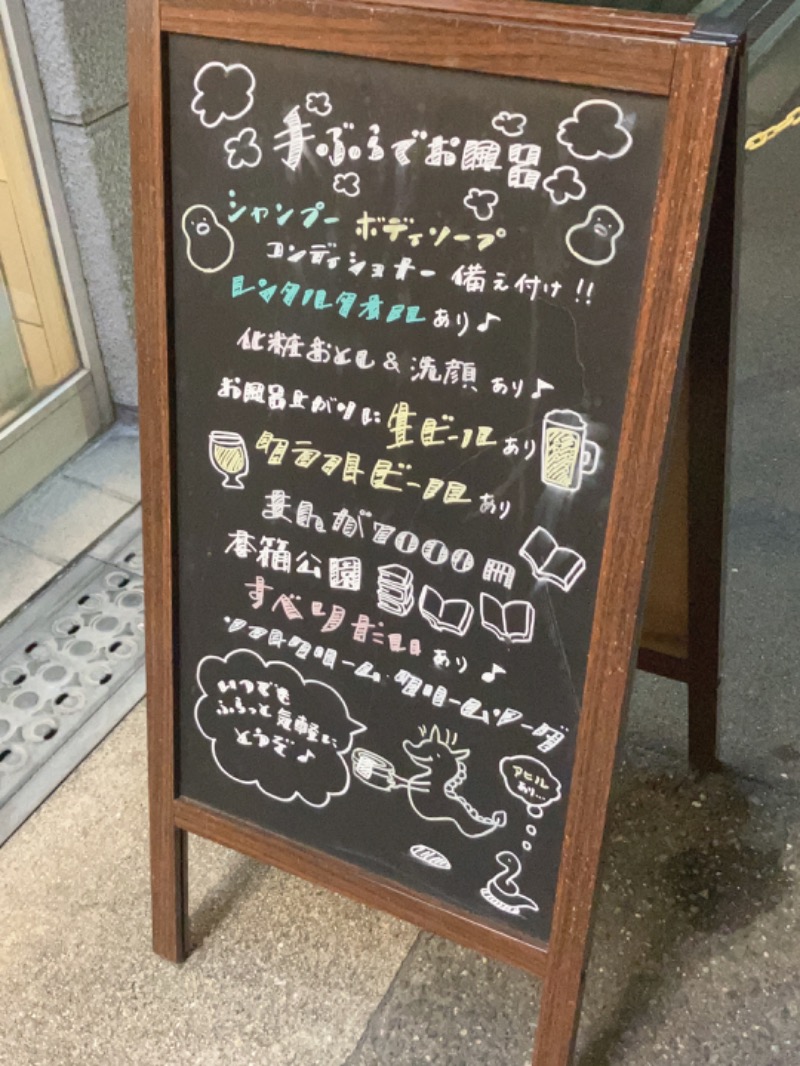 手ぶらでお風呂
シャンプー ボディソープ
コンディショナー 備え付け!!
レンタルタオル あり♪
化粧おとし&洗顔 あり♪
お風呂上がりに 生ビール あり
クラフトビール あり
まんが7000冊
本箱公園
すべりだい あり♪
ソフトクリーム クリームソーダ
いつでも
ふらっと気軽に
どうぞ♪
アヒル
あり…